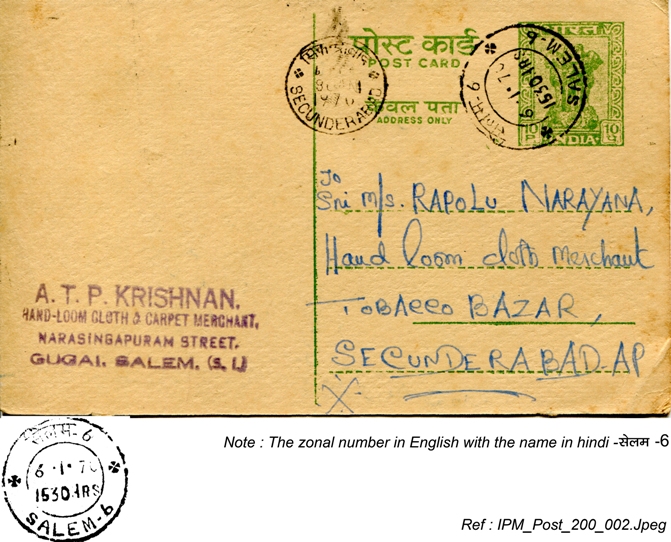 पोस्ट कार्ड
POST CARD
केवल पता
ADDRESS ONLY
भारत
10 10
INDIA
SECUNDERABAD
1970
SALEM-6
6.1.70
1530HRS
To
Sri M/s. RAPOLU NARAYANA,
Hand Loom cloth Merchant
TOBACCO BAZAR,
SECUNDERABAD. AP
A. T. P. KRISHNAN.
HAND-LOOM CLOTH & CARPET MERCHANT,
NARASINGAPURAM STREET,
GUGAI, SALEM, (S. I.)
सेलम-6
6.1.70
1530HRS
SALEM-6
Note : The zonal number in English with the name in hindi -सेलम -6
Ref : IPM_Post_200_002.Jpeg